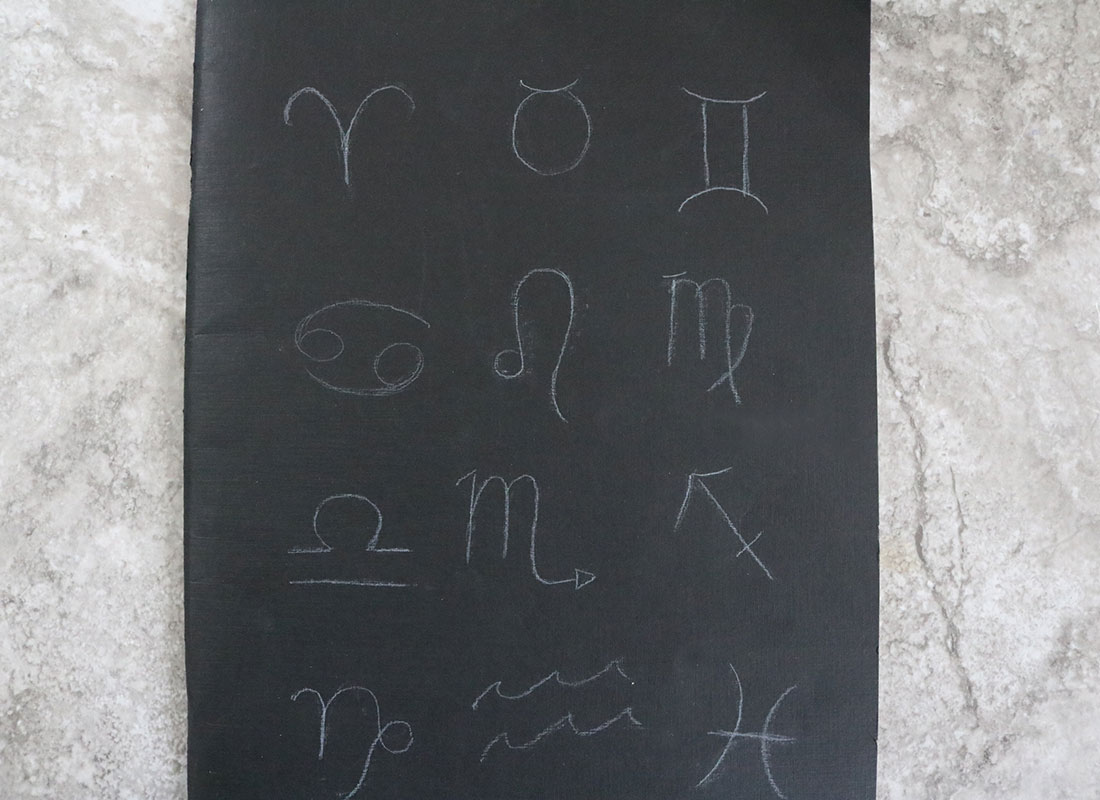 ♈ ♉ ♊
♋ ♌ ♍
♎ ♏ ♐
♑ ♒ ♓